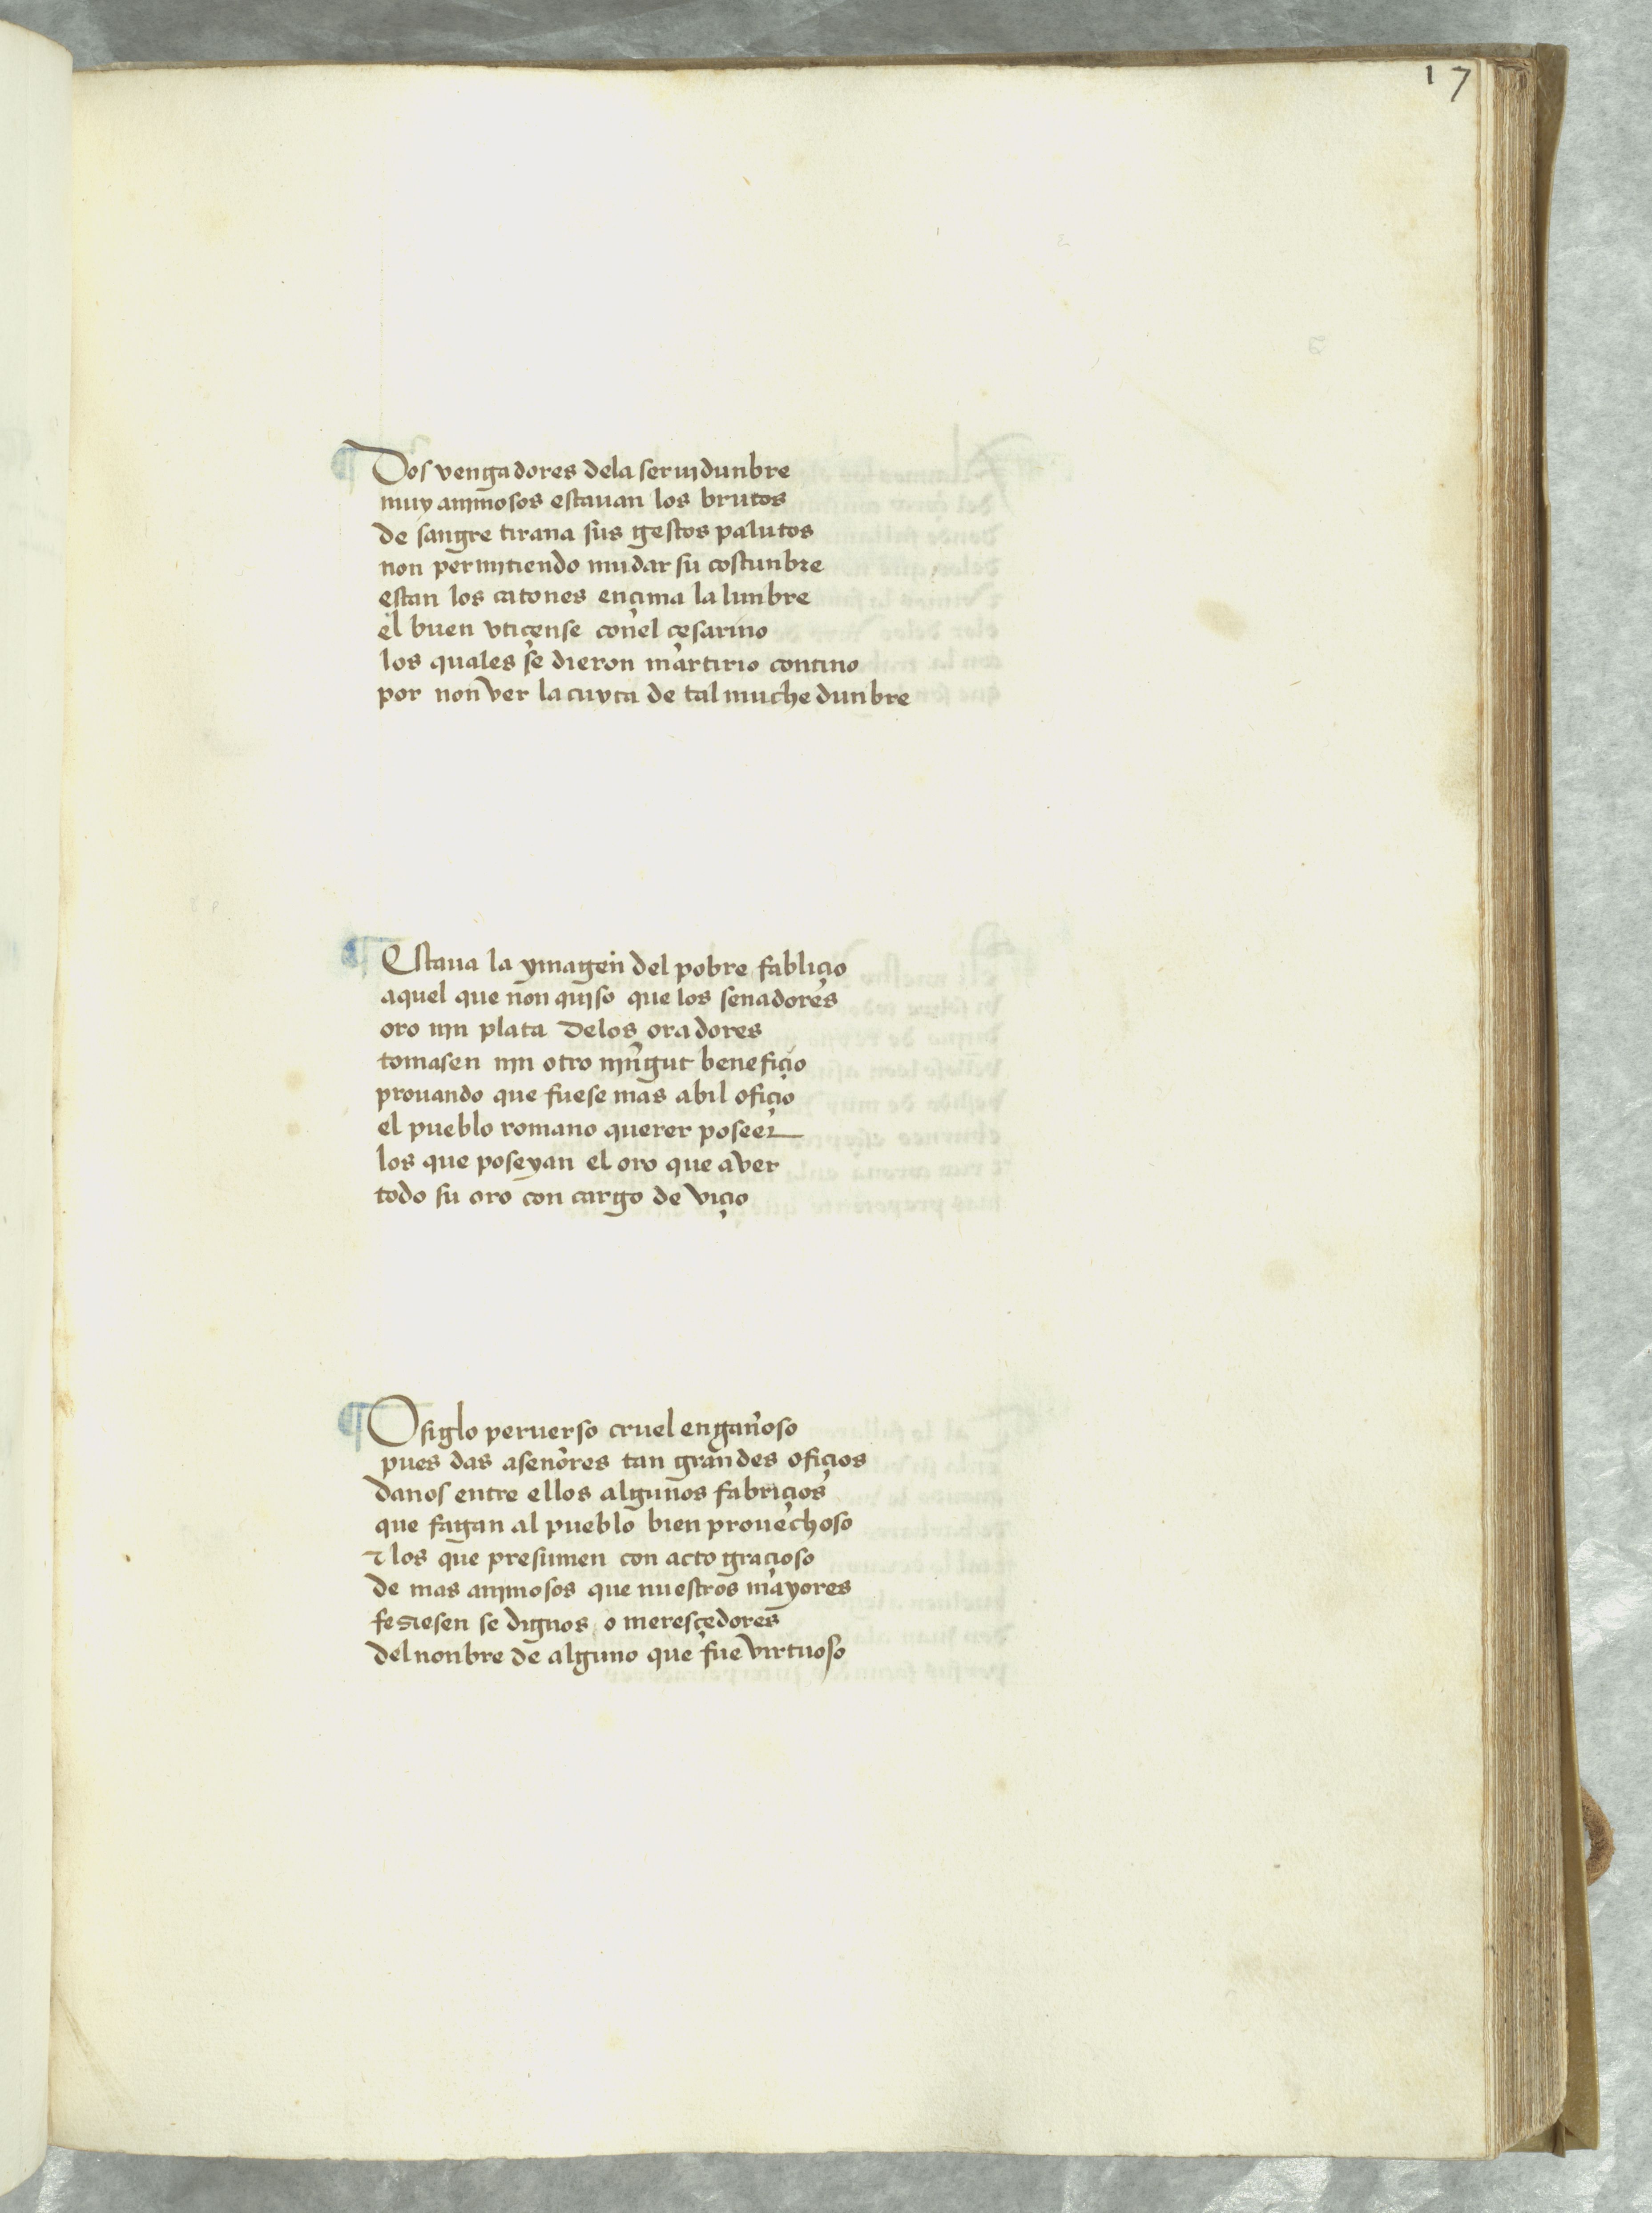 17
¶ Dos vengadores dela seruidunbre
muy animosos estauan los brutos
de sangre tirana sus gestos palutos
non permitiendo mudar su costunbre
estan los catones ençima la lunbre
el buen vticense conel çesarino
los quales se dieron martirio contino
por non ver la cuyta de tal muchedunbre
¶ Estaua la ymagen del pobre fabliçio
aquel que non quiso que los senadores
oro nin plata delos oradores
tomasen nin otro ningut benefiçio
prouando que fuese mas abil ofiçio
el pueblo romano querer poseer
los que poseyan el oro que aver
todo su oro con cargo de viçio
¶ O siglo peruerso cruel engañoso
pues das aseñores tan grandes ofiçios
danos entre ellos algunos fabriçios
que fagan al pueblo bien prouechoso
⁊ los que presumen con acto graçioso
de mas animosos que nuestros mayores
fesiesen se dignos o meresçedores
del nonbre de alguno que fue virtuoso